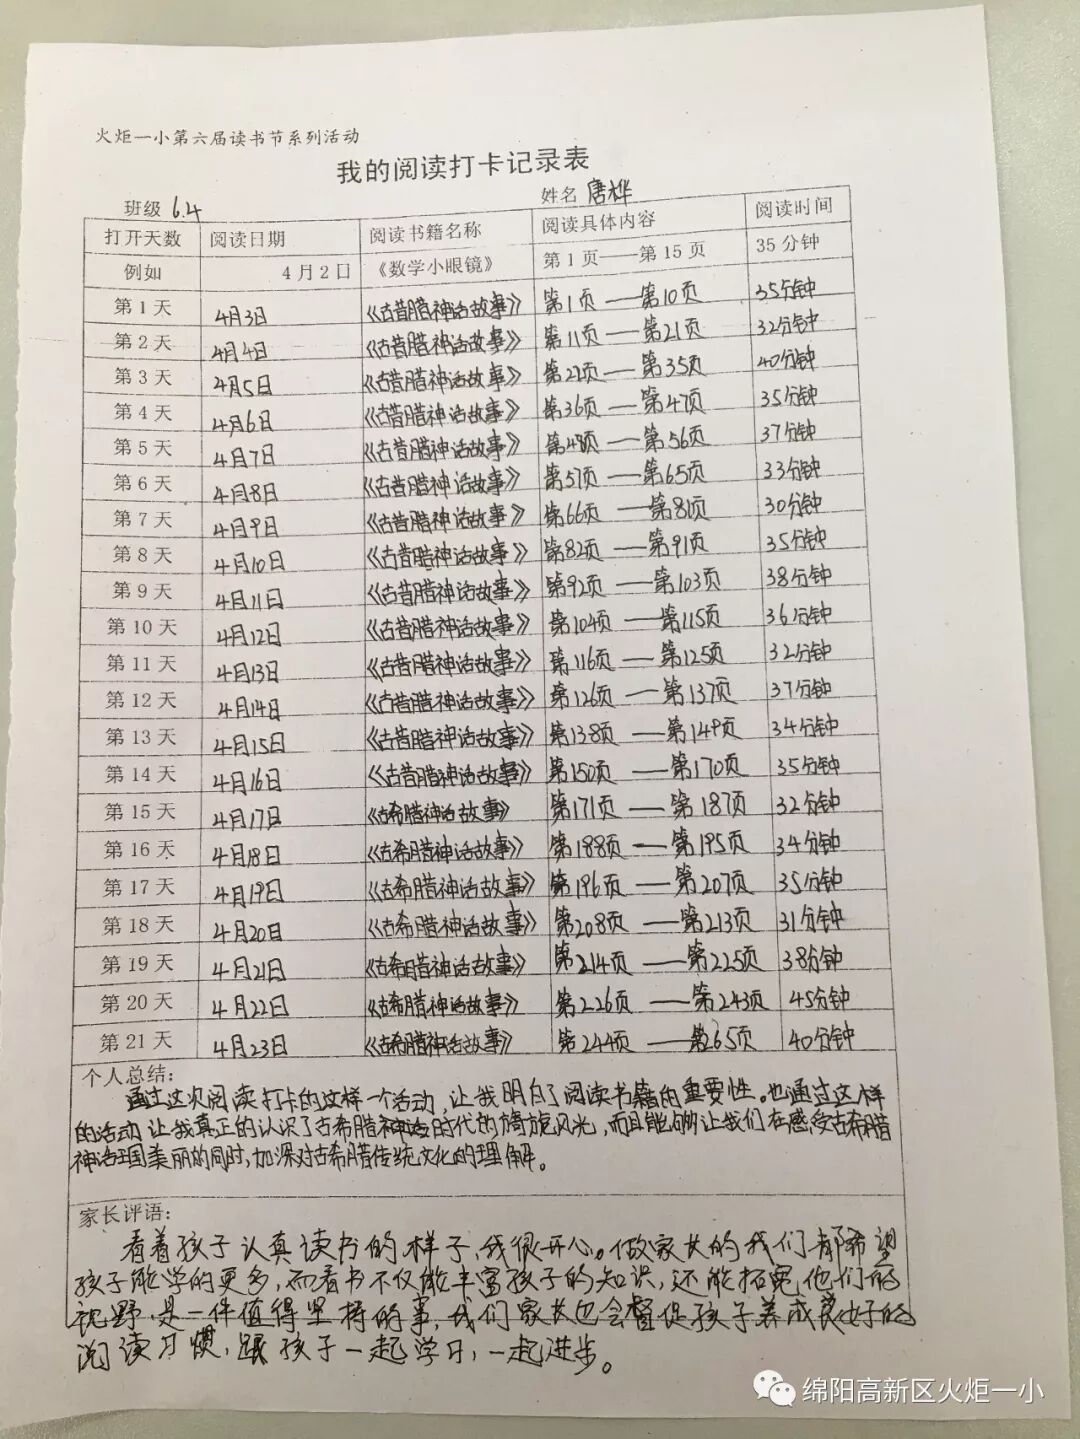 火炬一小第六届读书节系列活动
我的阅读打卡记录表
班级 6.4 姓名 唐桦
打开天数 阅读日期 阅读书籍名称 阅读具体内容 阅读时间
例如 4月2日 《数学小眼镜》 第1页——第15页 35分钟
第1天 4月3日 《古昔腊神话故事》 第1页——第10页 35分钟
第2天 4月4日 《古昔腊神话故事》 第11页——第21页 32分钟
第3天 4月5日 《古昔腊神话故事》 第22页——第35页 40分钟
第4天 4月6日 《古昔腊神话故事》 第36页——第47页 35分钟
第5天 4月7日 《古昔腊神话故事》 第48页——第56页 37分钟
第6天 4月8日 《古昔腊神话故事》 第57页——第65页 33分钟
第7天 4月9日 《古昔腊神话故事》 第66页——第81页 30分钟
第8天 4月10日 《古昔腊神话故事》 第82页——第91页 35分钟
第9天 4月11日 《古昔腊神话故事》 第92页——第103页 38分钟
第10天 4月12日 《古昔腊神话故事》 第104页——第115页 36分钟
第11天 4月13日 《古昔腊神话故事》 第116页——第125页 32分钟
第12天 4月14日 《古昔腊神话故事》 第126页——第137页 37分钟
第13天 4月15日 《古昔腊神话故事》 第138页——第149页 34分钟
第14天 4月16日 《古昔腊神话故事》 第150页——第170页 35分钟
第15天 4月17日 《古希腊神话故事》 第171页——第187页 32分钟
第16天 4月18日 《古希腊神话故事》 第188页——第195页 34分钟
第17天 4月19日 《古希腊神话故事》 第196页——第207页 35分钟
第18天 4月20日 《古希腊神话故事》 第208页——第213页 31分钟
第19天 4月21日 《古希腊神话故事》 第214页——第225页 38分钟
第20天 4月22日 《古希腊神话故事》 第226页——第243页 45分钟
第21天 4月23日 《古希腊神话故事》 第244页——第265页 40分钟
个人总结:
通过这次阅读打卡的这样一个活动,让我明白了阅读书籍的重要性。也通过这样
的活动让我真正的认识了古希腊神话时代的旖旎风光,而且能够让我们在感受古希腊
神话王国美丽的同时,加深对古希腊传统文化的理解。
家长评语:
看着孩子认真读书的样子,我很开心。做家长的我们都希望
孩子能学的更多,而看书不仅能丰富孩子的知识,还能拓宽他们的
视野,是一件值得坚持的事,我们家长也会督促孩子养成良好的
阅读习惯,跟孩子一起学习,一起进步。
绵阳高新区火炬一小